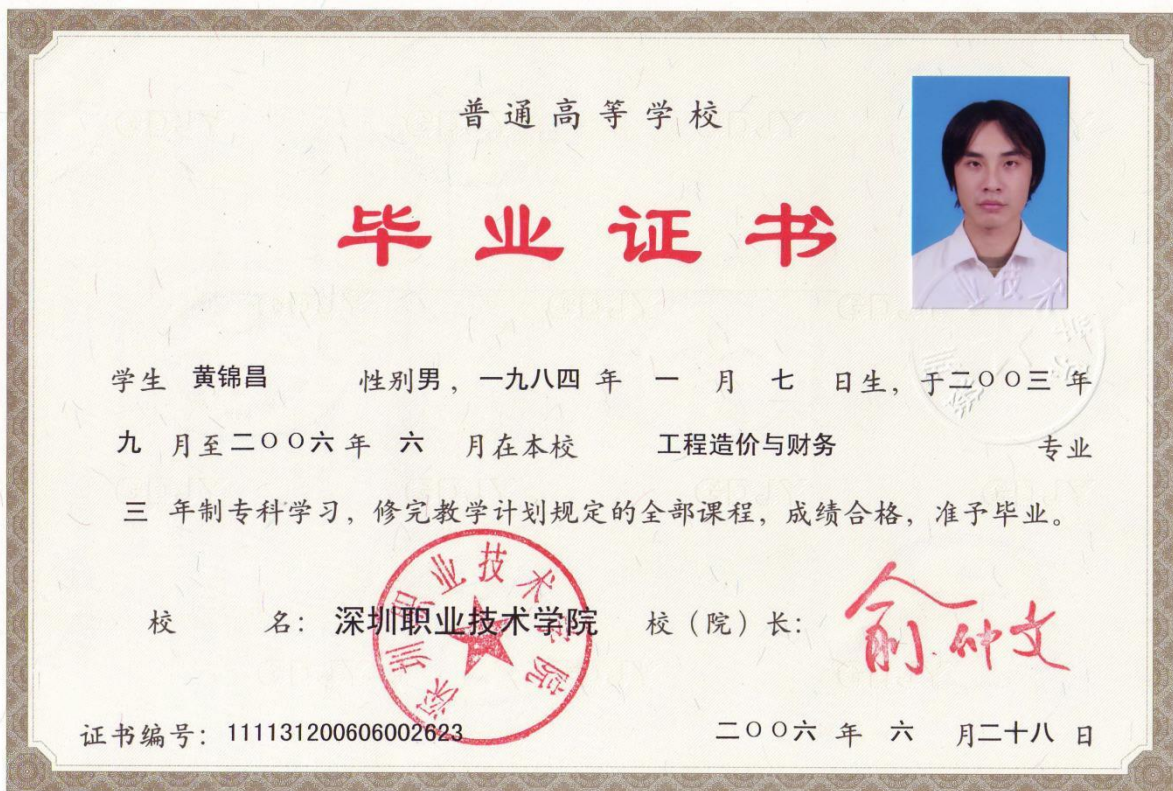 普通高等学校
毕业证书
学生 黄锦昌 性别男，一九八四 年 一 月 七 日生，于二〇〇三 年
九 月至二〇〇六 年 六 月在本校 工程造价与财务 专业
三 年制专科学习，修完教学计划规定的全部课程，成绩合格，准予毕业。
深圳职业技术学院
校 名：深圳职业技术学院 校（院）长：俞仲文
证书编号：111131200606002623 二〇〇六 年 六 月二十八 日